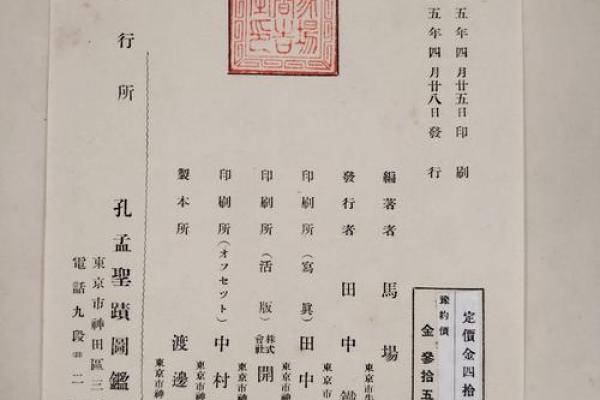 五年四月廿五日印刷
五年四月廿八日發行
定價金四拾
豫約價
金參拾五
編著者 馬場
東京市
發行者 田中
東京市
印刷所(寫眞)田中
東京市
印刷所(活版)株式會社 開
東京市神
印刷所(オフセツト)中村
東京市神
製本所 渡邊
東京市神
行所 孔孟聖蹟圖鑑
東京市神田區三
電話九段
二